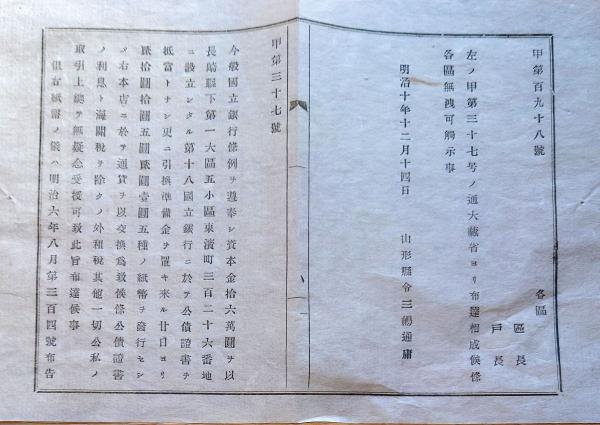 甲第百九十八號
各區
區長
戸長
左ノ甲第三十七号ノ通大藏省ヨリ布達相成候條
各區無洩可觸示事
明治十年十二月十四日
山形縣令三島通庸
甲第三十七號
今般國立銀行條例ヲ遵奉シ資本金拾六萬圓ヲ以
長崎縣下第一大區五小區東濱町三百二十六番地
ニ設立シタル第十八國立銀行ニ於テ公債證書ヲ
抵當トナシ更ニ引換準備金ヲ置キ來ル廿日ヨリ
貳拾圓拾圓五圓貳圓壹圓五種ノ紙幣ヲ發行セシ
メ右本店ニ於テ通貨ヲ以交換爲致候條公債證書
ノ利息ト海關税ヲ除クノ外租税其他一切公私ノ
取引上總テ無疑念受授可致此旨布達候事
但右紙幣ノ儀ハ明治六年八月第三百四號布告